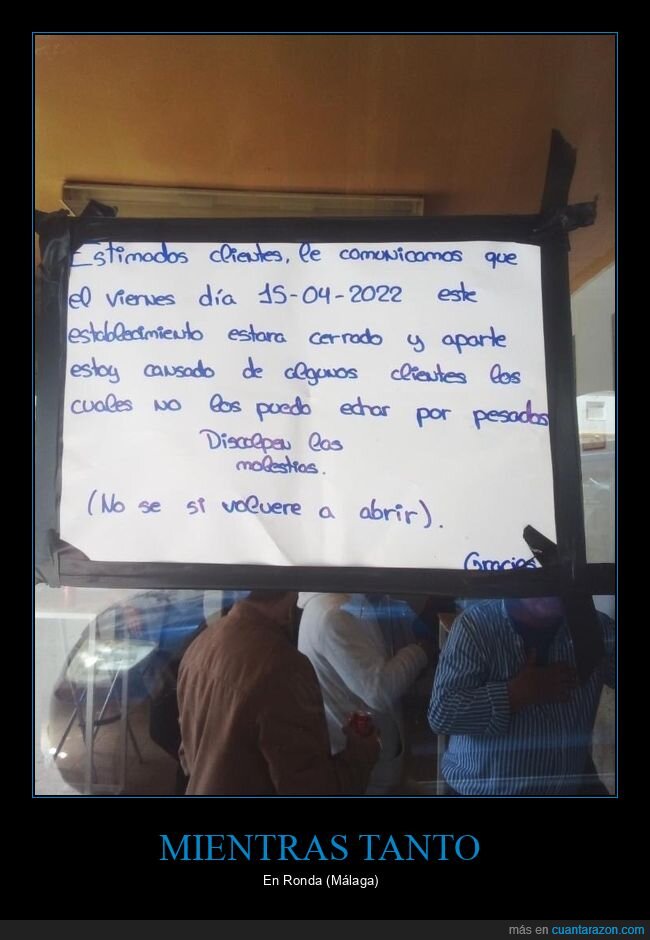 Estimados clientes, le comunicamos que
el viernes día 15-04-2022 este
establecimiento estara cerrado y aparte
estoy cansado de algunos clientes los
cuales no los puedo echar por pesados
Disculpen las
molestias.
(No se si volvere a abrir).
Gracias
MIENTRAS TANTO
En Ronda (Málaga)
más en cuantarazon.com